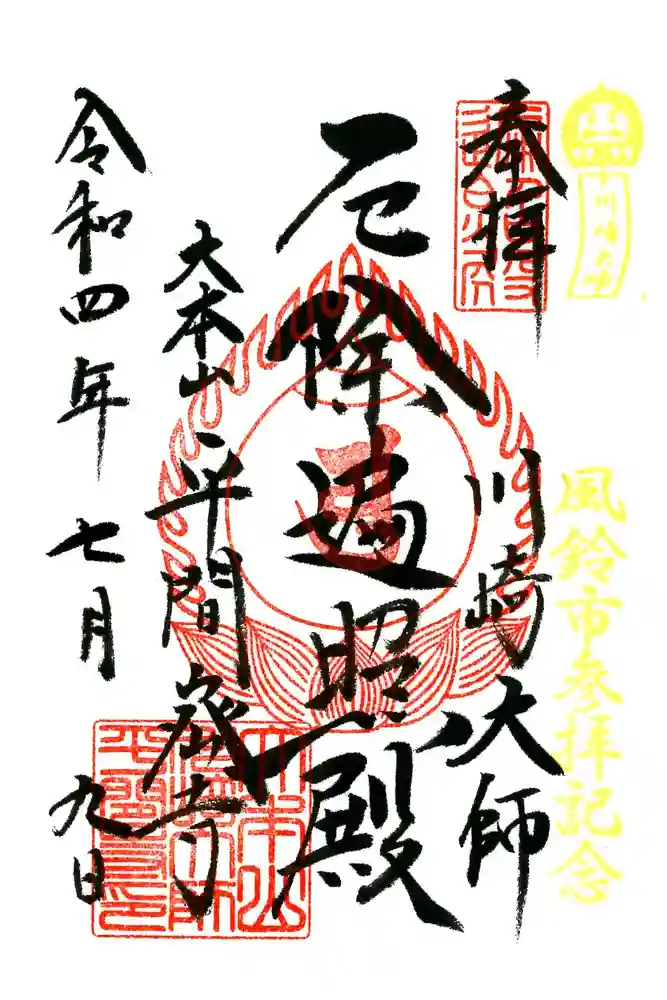 川崎大師
風鈴市参拝記念
奉拝
川崎大師
厄除遍照殿
大本山
平間寺
令和四年七月九日